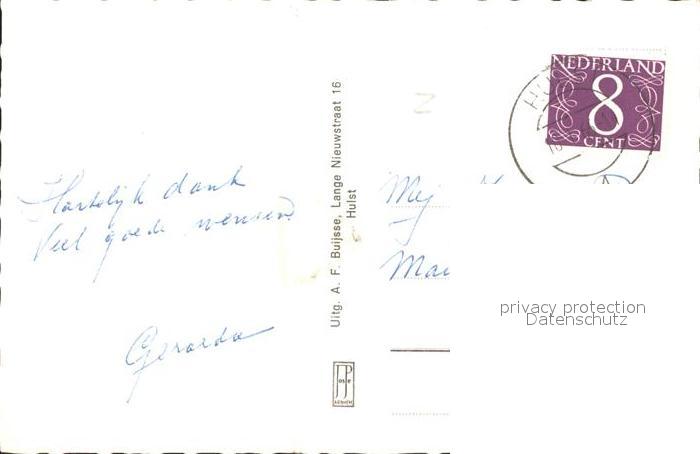 Hartelijk dank
Veel goede wensen
Gerarda
Uitg. A. F. Buijsse, Lange Nieuwstraat 16
Hulst
NEDERLAND
8
CENT
Mej
privacy protection
Datenschutz